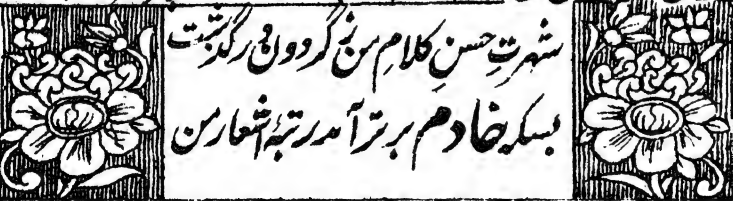 شہرتِ حسنِ کلامِ من ز گردون در گذشت
بسکہ خادم برتر آمد رتبۂ اشعار من